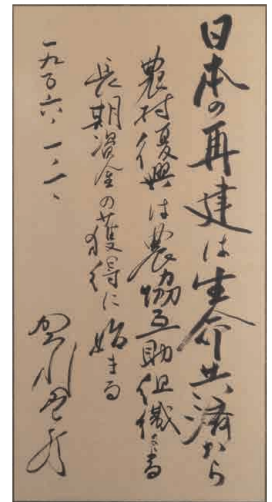 日本の再建は生命共済から
農村復興は農協互助組織による
長期資金の獲得に始まる
一九五六、一、一、